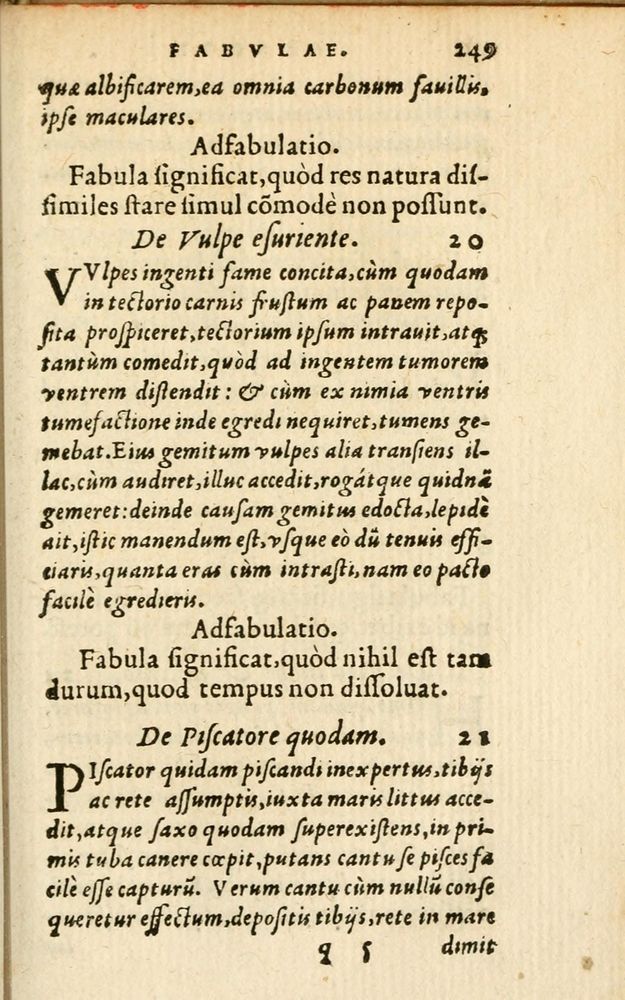 FABVLAE. 249
quæ albificarem,ea omnia carbonum fauillis,
ipſe maculares.
Adfabulatio.
Fabula ſignificat,quòd res natura diſ-
ſimiles ſtare ſimul cõmodè non poſſunt.
De Vulpe eſuriente. 20
VVlpes ingenti fame concita,cùm quodam
in tectorio carnis fruſtum ac panem repo-
ſita proſpiceret,tectorium ipſum intrauit,atq;
tantùm comedit,quòd ad ingentem tumorem
ventrem diſtendit: & cùm ex nimia ventris
tumefactione inde egredi nequiret,tumens ge-
mebat.Eius gemitum vulpes alia tranſiens il-
lac,cùm audiret,illuc accedit,rogátque quidnã
gemeret:deinde cauſam gemitus edocta,lepidè
ait,iſtic manendum eſt,vſque eò dũ tenuis effi-
ciaris,quanta eras cùm intraſti,nam eo pacto
facilè egredieris.
Adfabulatio.
Fabula ſignificat,quòd nihil eſt tam
durum,quod tempus non diſſoluat.
De Piſcatore quodam. 21
PIſcator quidam piſcandi inexpertus,tibijs
ac rete aſſumptis,iuxta maris littus acce-
dit,atque ſaxo quodam ſuperexiſtens,in pri-
mis tuba canere cœpit,putans cantu ſe piſces fa
cilè eſſe capturũ. Verum cantu cùm nullũ conſe
queretur effectum,depoſitis tibijs,rete in mare
q 5 dimit